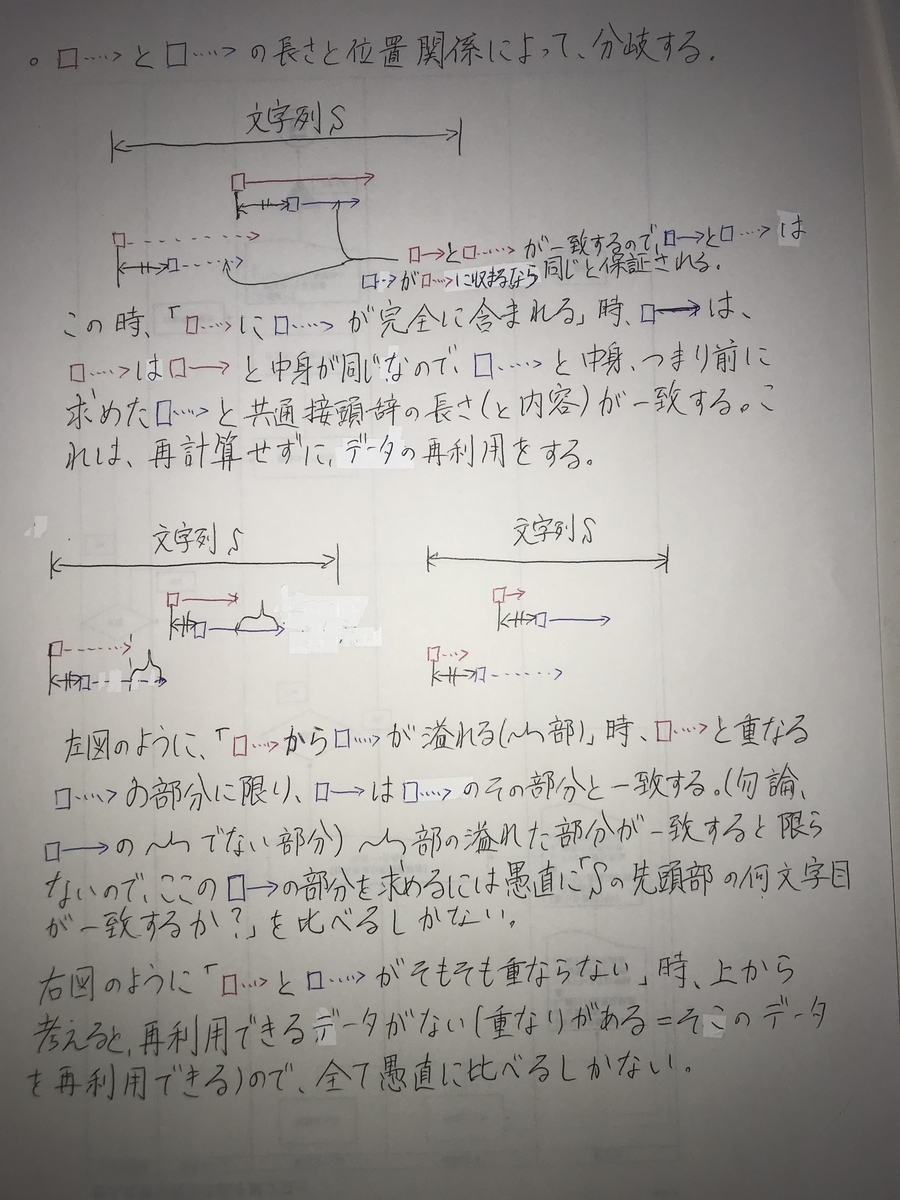 。□····>と□····>の長さと位置関係によって、分岐する.
文字列S
□→と□····>が一致するので,□→と□····>は
□··>が□····>に収まるなら同じと保証される.
この時、「□····>に□····>が完全に含まれる」時、□→は、
□····>は□→と中身が同じなので、□····>と中身、つまり前に
求めた□····>と共通接頭辞の長さ(と内容)が一致する。こ
れは、再計算せずに,データの再利用をする。
文字列S
文字列S
左図のように、「□····>から□····>が溢れる(〜部)」時、□····>と重なる
□····>の部分に限り、□→は□····>のその部分と一致する。(勿論、
□→の〜でない部分)〜部の溢れた部分が一致すると限ら
ないので、ここの□→の部分を求めるには愚直に「Sの先頭部の何文字目
が一致するか?」を比べるしかない。
右図のように「□···>と□····>がそもそも重ならない」時、上から
考えると,再利用できるデータがない(重なりがある=そこのデータ
を再利用できる)ので、全て愚直に比べるしかない。